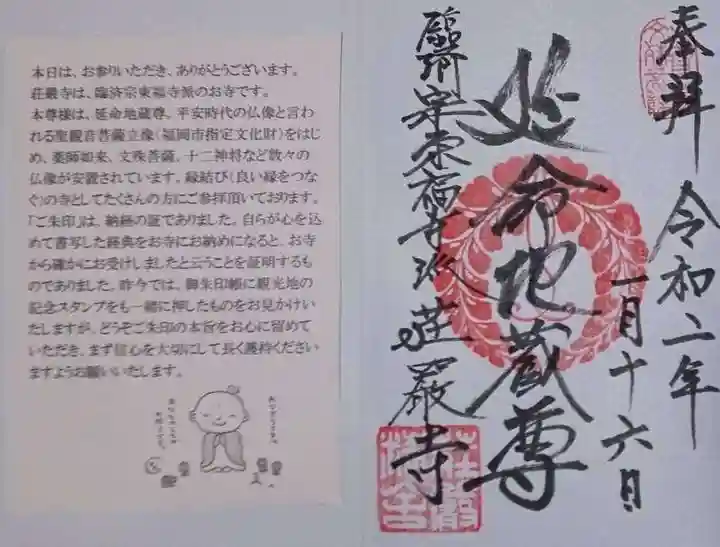 本日は、お参りいただき、ありがとうございます。
荘厳寺は、臨済宗東福寺派のお寺です。
本尊様は、延命地蔵尊、平安時代の仏像と言わ
れる聖観音菩薩立像(福岡市指定文化財)をはじ
め、薬師如来、文殊菩薩、十二神将など数々の
仏像が安置されています。縁結び(良い縁をつな
ぐ)の寺としてたくさんの方にご参拝頂いております。
「ご朱印」は、納経の証でありました。自らが心を込
めて書写した経典をお寺にお納めになると、お寺
から確かにお受けしましたと云うことを証明するも
のでありました。昨今では、御朱印帳に観光地の
記念スタンプをも一緒に押したものをお見かけい
たしますが、どうぞご朱印の本旨をお心に留めて
いただき、まず信心を大切にして長く護持ください
ますようお願いいたします。
奉拝 令和二年
一月十六日
延命地蔵尊
臨済宗東福寺派 荘嚴寺